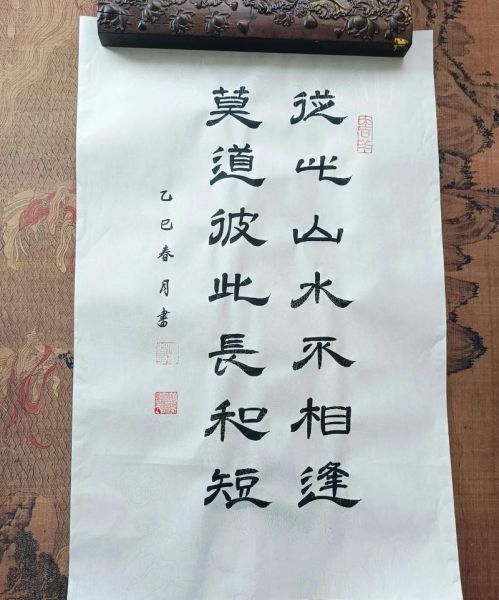 從此山水不相逢
莫道彼此長和短
乙巳春月書